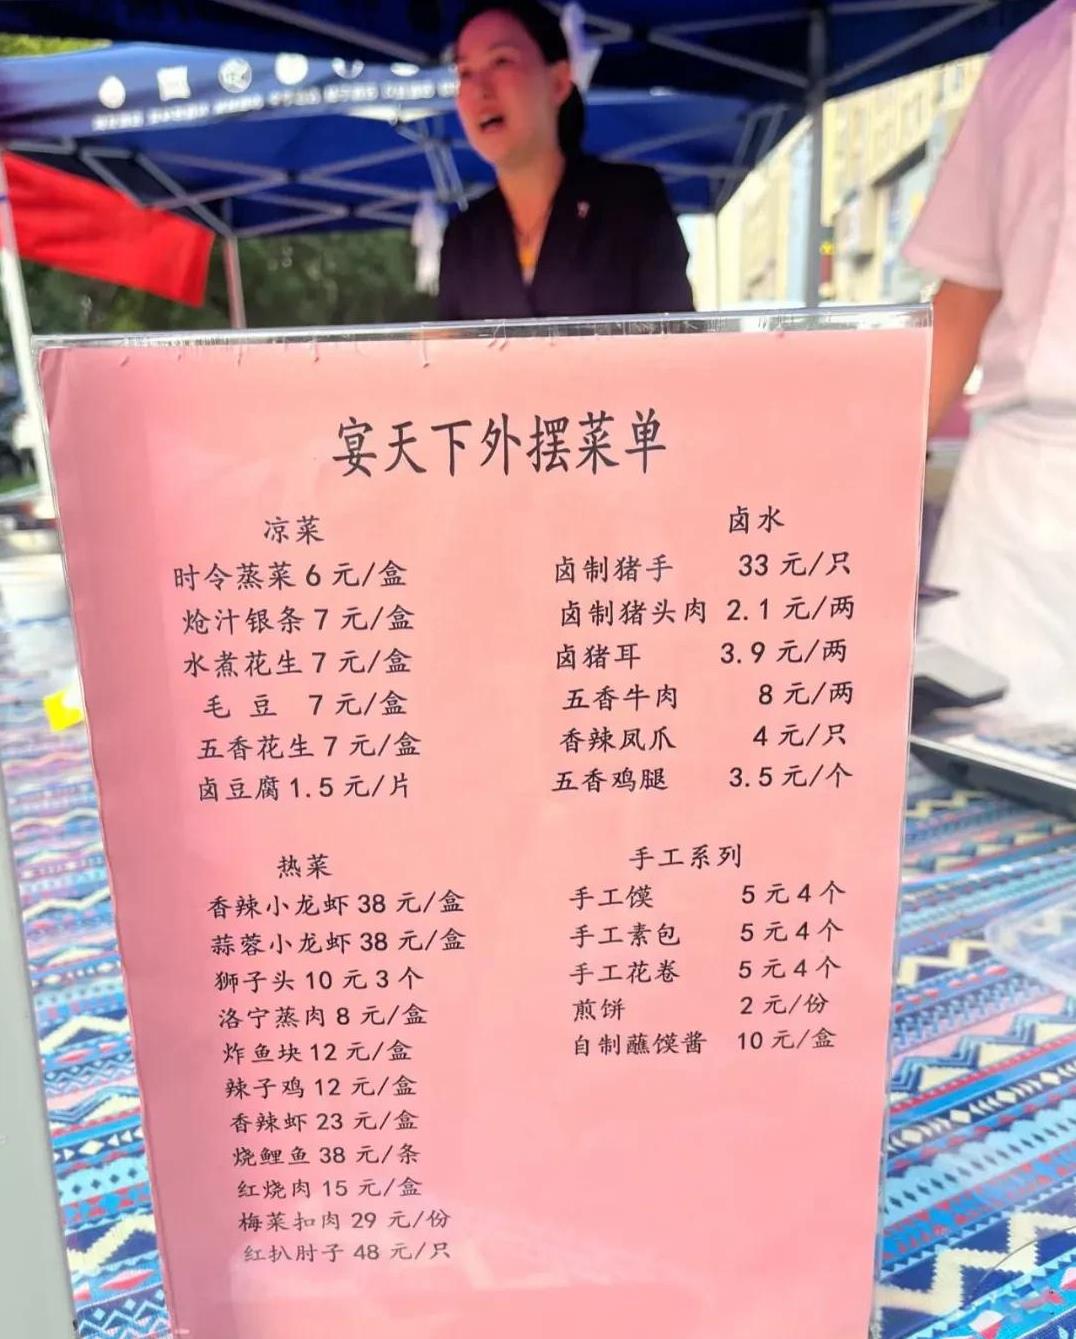 宴天下外摆菜单
凉菜
时令蒸菜 6 元/盒
炝汁银条 7 元/盒
水煮花生 7 元/盒
毛 豆 7 元/盒
五香花生 7 元/盒
卤豆腐 1.5 元/片
卤水
卤制猪手 33 元/只
卤制猪头肉 2.1 元/两
卤猪耳 3.9 元/两
五香牛肉 8 元/两
香辣凤爪 4 元/只
五香鸡腿 3.5 元/个
热菜
香辣小龙虾 38 元/盒
蒜蓉小龙虾 38 元/盒
狮子头 10 元 3 个
洛宁蒸肉 8 元/盒
炸鱼块 12 元/盒
辣子鸡 12 元/盒
香辣虾 23 元/盒
烧鲤鱼 38 元/条
红烧肉 15 元/盒
梅菜扣肉 29 元/份
红扒肘子 48 元/只
手工系列
手工馍 5 元 4 个
手工素包 5 元 4 个
手工花卷 5 元 4 个
煎饼 2 元/份
自制蘸馍酱 10 元/盒